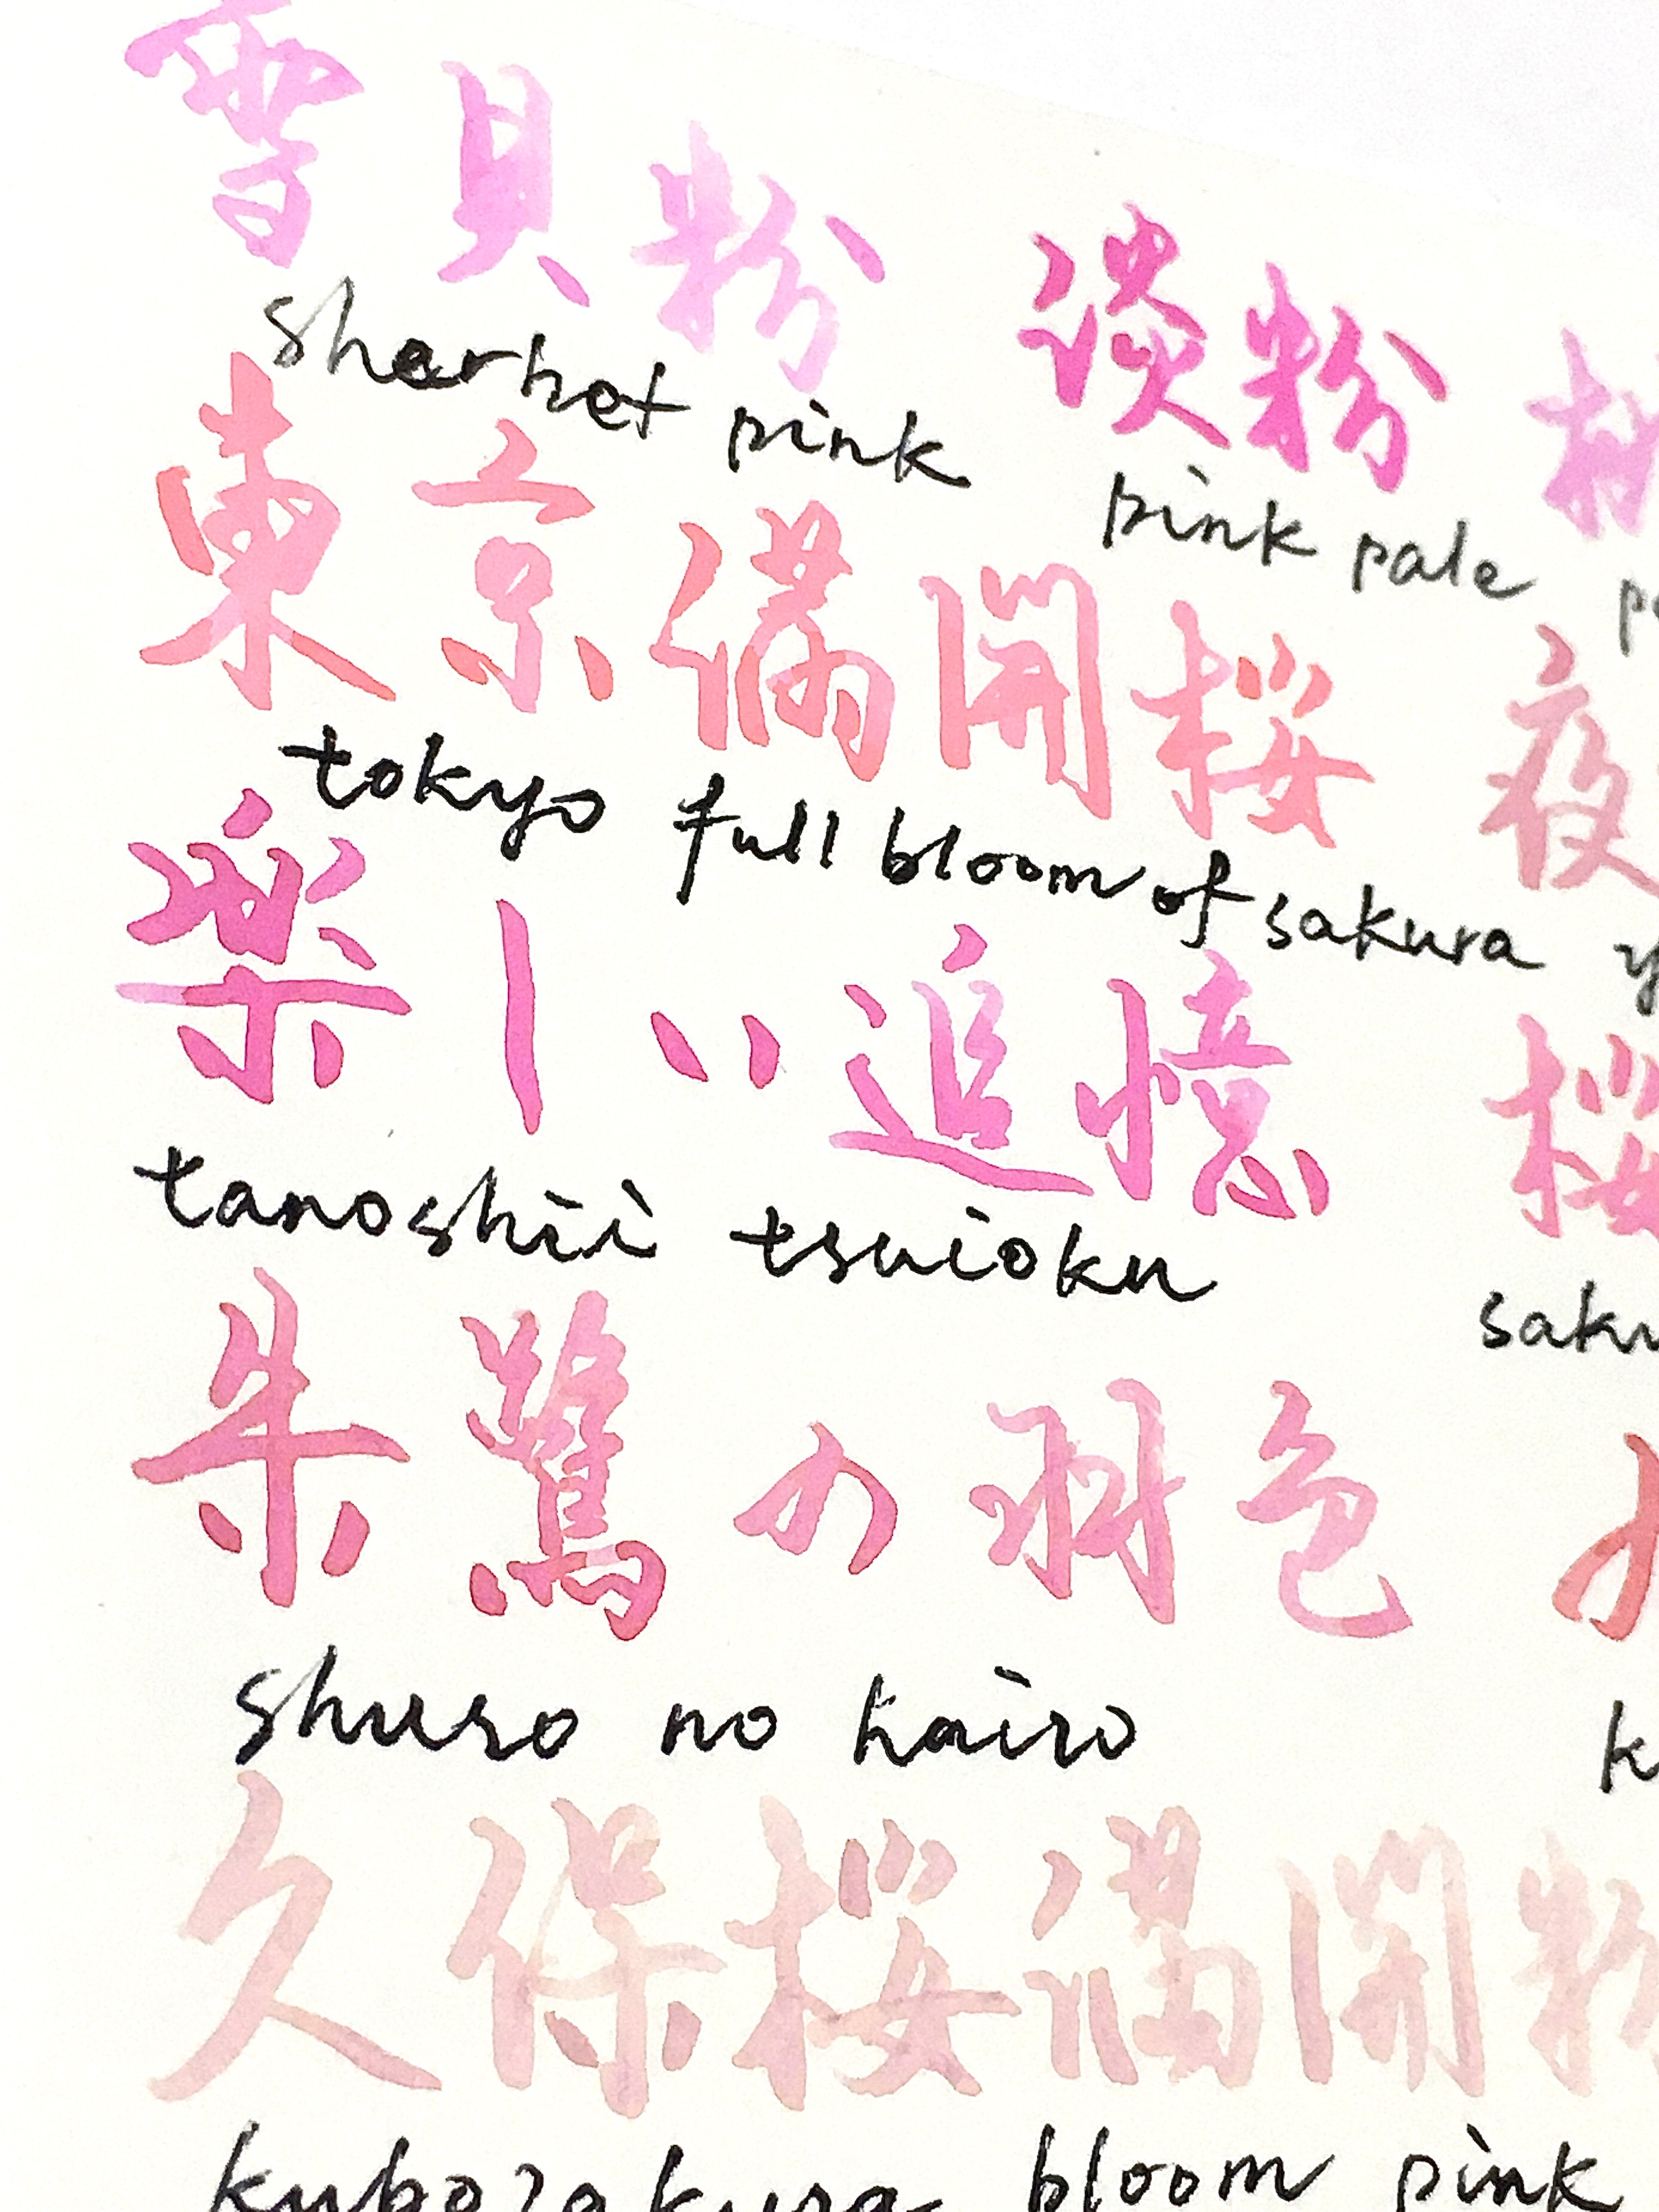 雪貝粉 淡粉
sherbet pink pink pale
東京満開桜 夜
tokyo full bloom of sakura y
楽しい追憶 桜
tanoshii tsuioku saku
朱鷺の羽色
shuro no hairo k
久保桜満開粉
kubozakura bloom pink